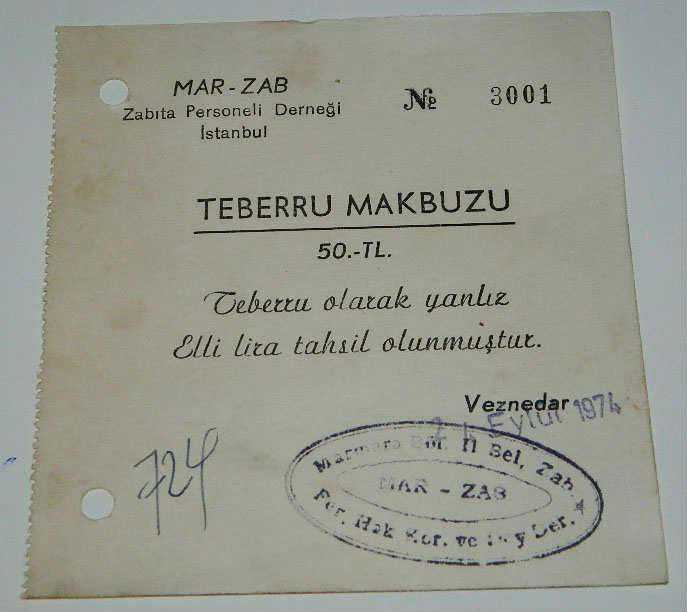 MAR - ZAB
Zabıta Personeli Derneği
İstanbul
№ 3001
TEBERRU MAKBUZU
50.-TL.
Teberru olarak yanlız
Elli lira tahsil olunmuştur.
Veznedar
Eylül 1974
724
Marmara Böl. İl Bel. Zab.
MAR - ZAB
Per. Hak Kor. ve Der.